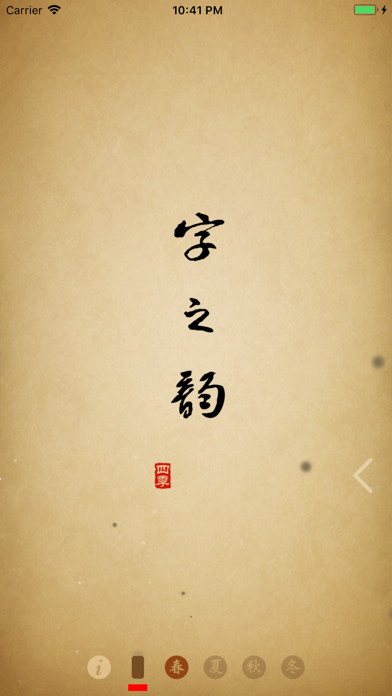 Carrier 10:41 PM
字之韵
四季
i 春 夏 秋 冬